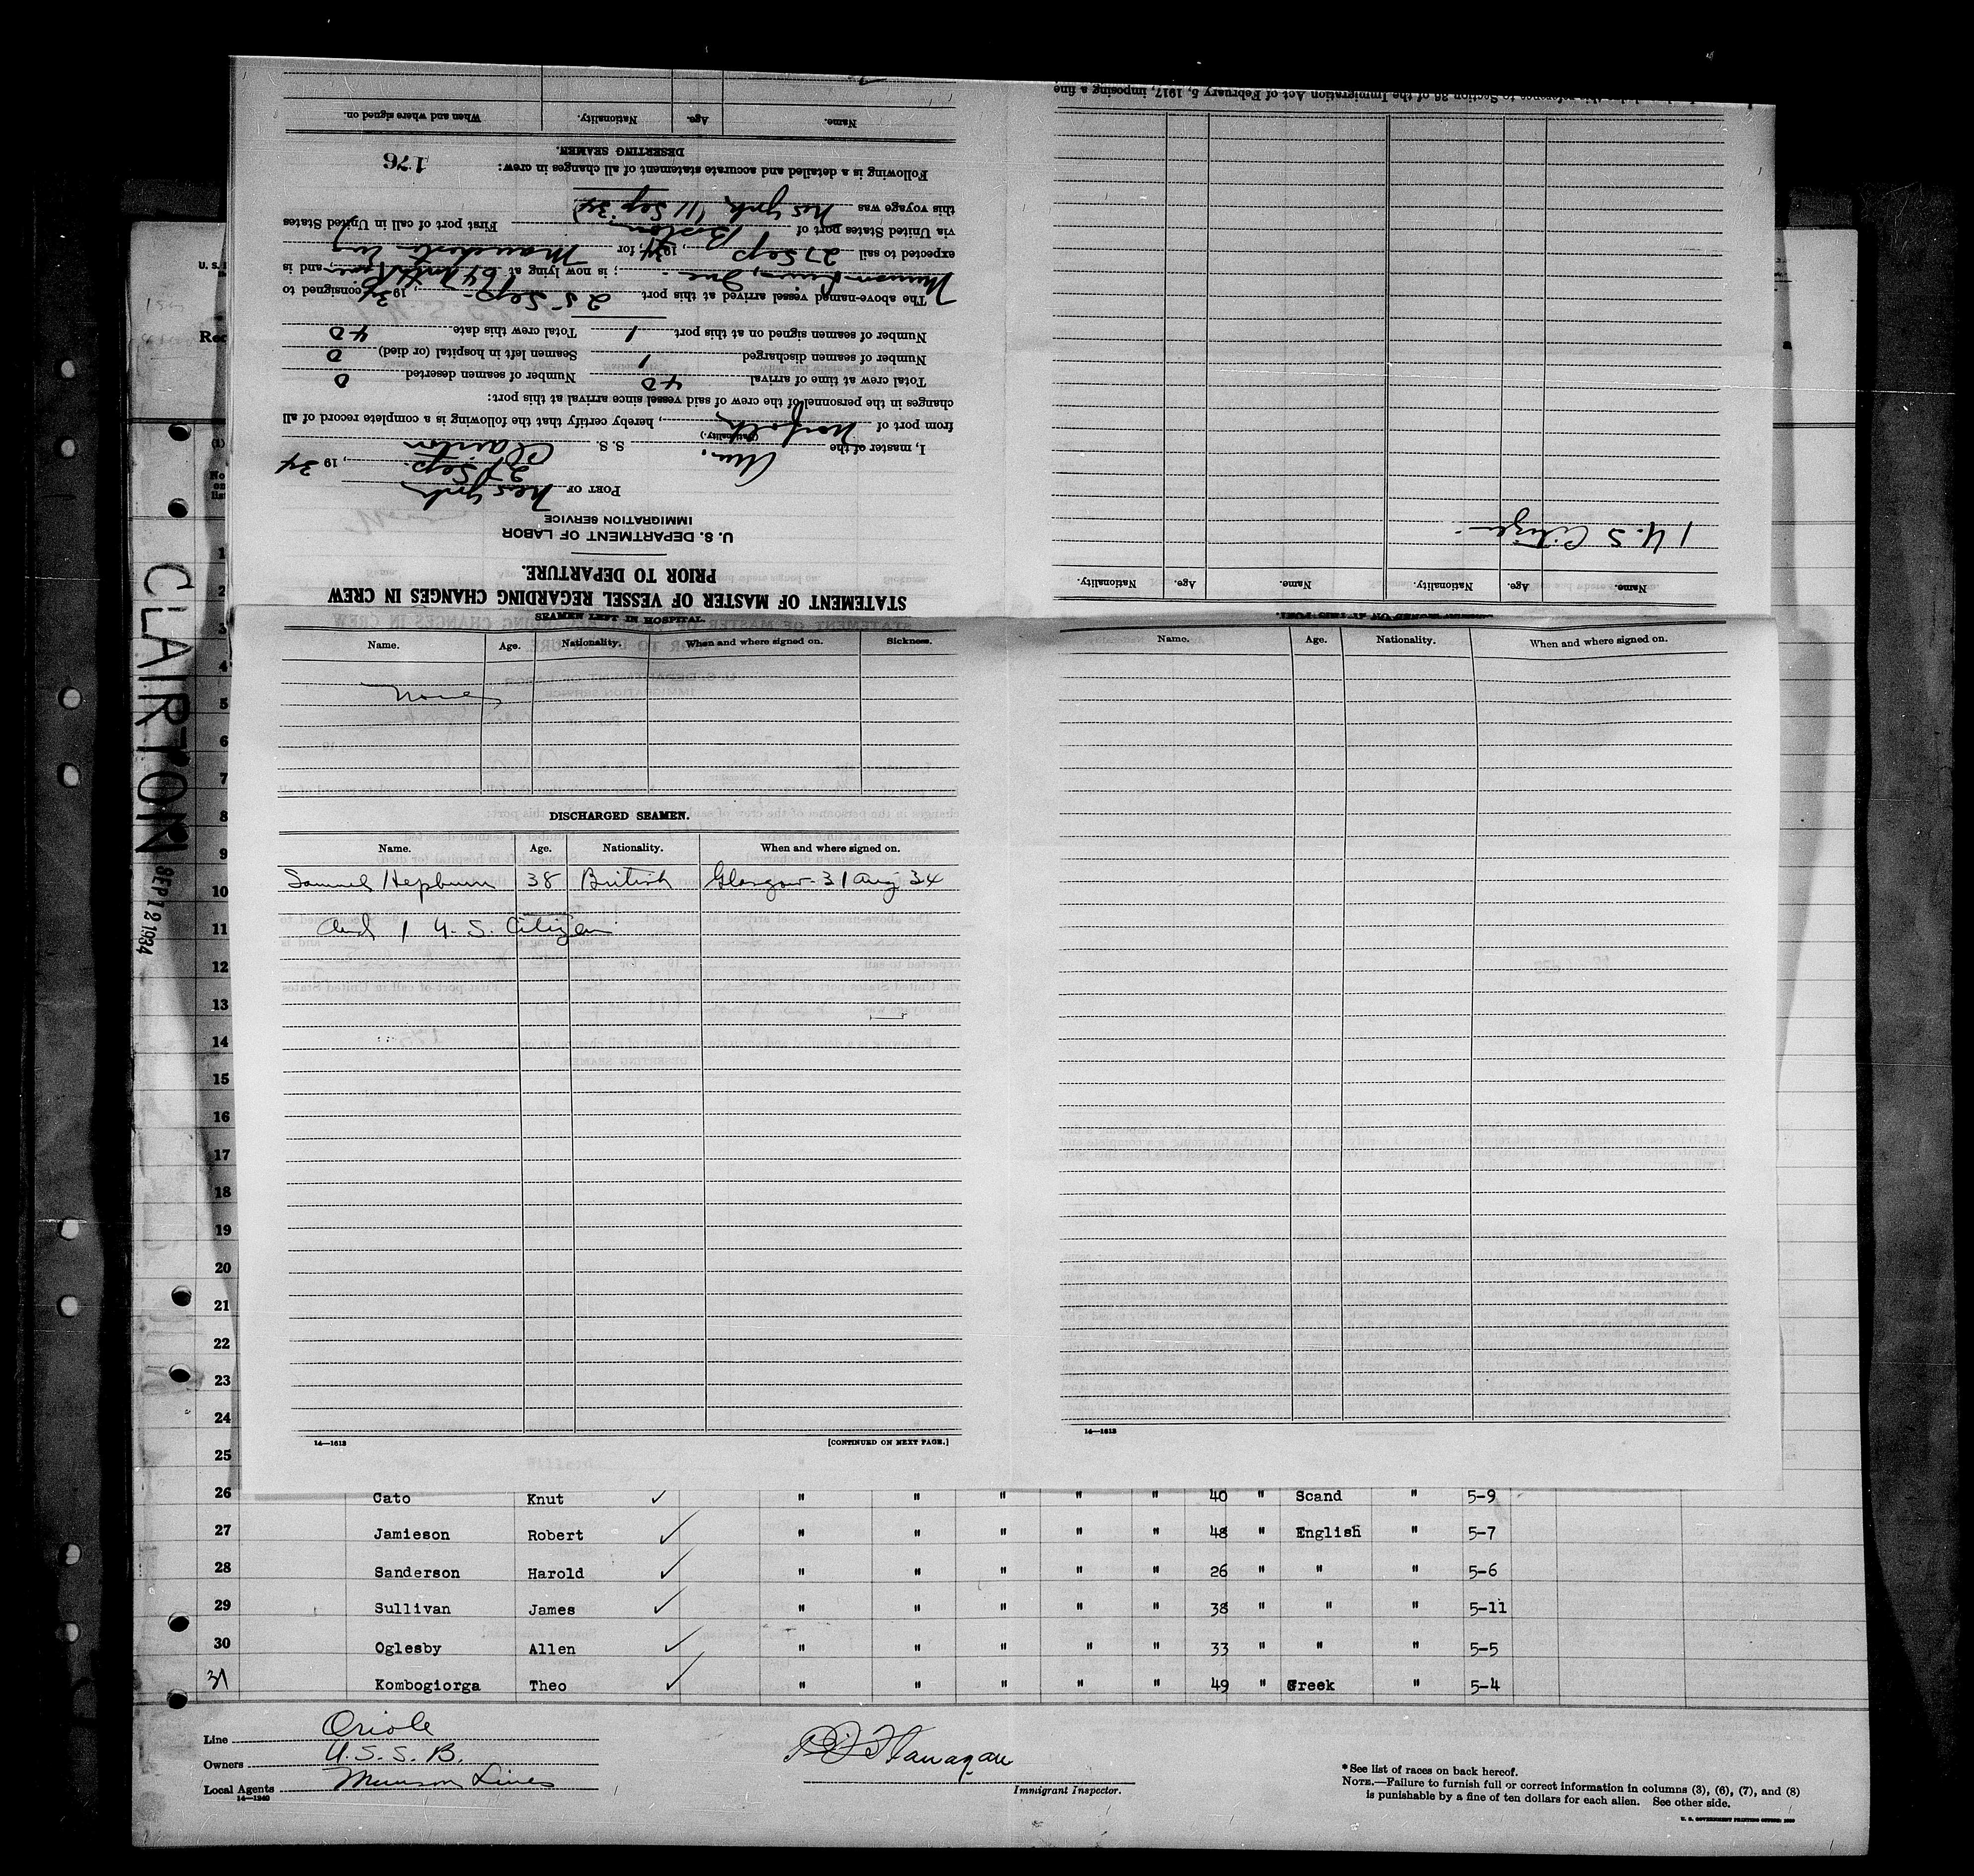 STATEMENT OF MASTER OF VESSEL REGARDING CHANGES IN CREW
PRIOR TO DEPARTURE.
U. S. DEPARTMENT OF LABOR
IMMIGRATION SERVICE
PORT OF New York
27 Sep. , 19 34
I, master of the Am. S. S. Clairton
(Nationality.)
from port of Norfolk , hereby certify that the following is a complete record of all
changes in the personnel of the crew of said vessel since arrival at this port:
Total crew at time of arrival 40 Number of seamen deserted 0
Number of seamen discharged 1 Seamen left in hospital (or died) 0
Number of seamen signed on at this port 1 Total crew this date 40
The above-named vessel arrived at this port 25 Sep. , 19 34 consigned to
Munson Line, Inc ; is now lying at North River , and is
expected to sail 27 Sep , 19 34, for Manchester Eng
via United States port of Boston First port of call in United States
this voyage was New York (11 Sep 34)
Following is a detailed and accurate statement of all changes in crew:
176
DESERTING SEAMEN.
Name. Age. Nationality. When and where signed on.
reference to Section 36 of the Immigration Act of February 5, 1917, imposing a fine
Name. Age. Nationality. Name. Age. Nationality.
1 U. S Citizen
SEAMEN LEFT IN HOSPITAL.
Name. Age. Nationality. When and where signed on. Sickness.
None
DISCHARGED SEAMEN.
Name. Age. Nationality. When and where signed on.
Samuel Hepburn 38 British Glasgow - 31 Aug 34
and 1 U. S. Citizen
14—1613 [CONTINUED ON NEXT PAGE.]
Name. Age. Nationality. When and where signed on.
14—1613
CLAIRTON SEP 12 1934
1
2
3
4
5
6
7
8
9
10
11
12
13
14
15
16
17
18
19
20
21
22
23
24
25
26 Cato Knut ✓ " " " " " 40 " Scand " 5-9
27 Jamieson Robert ✓ " " " " " 48 " English " 5-7
28 Sanderson Harold ✓ " " " " " 26 " " " 5-6
29 Sullivan James ✓ " " " " " 38 " " " 5-11
30 Oglesby Allen ✓ " " " " " 33 " " " 5-5
31 Kombogiorga Theo ✓ " " " " " 49 " Greek " 5-4
Line Oriole
Owners U. S. S. B.
Local Agents Munson Lines
14—1240
Flanagan
Immigrant Inspector.
* See list of races on back hereof.
NOTE.—Failure to furnish full or correct information in columns (3), (6), (7), and (8)
is punishable by a fine of ten dollars for each alien. See other side.